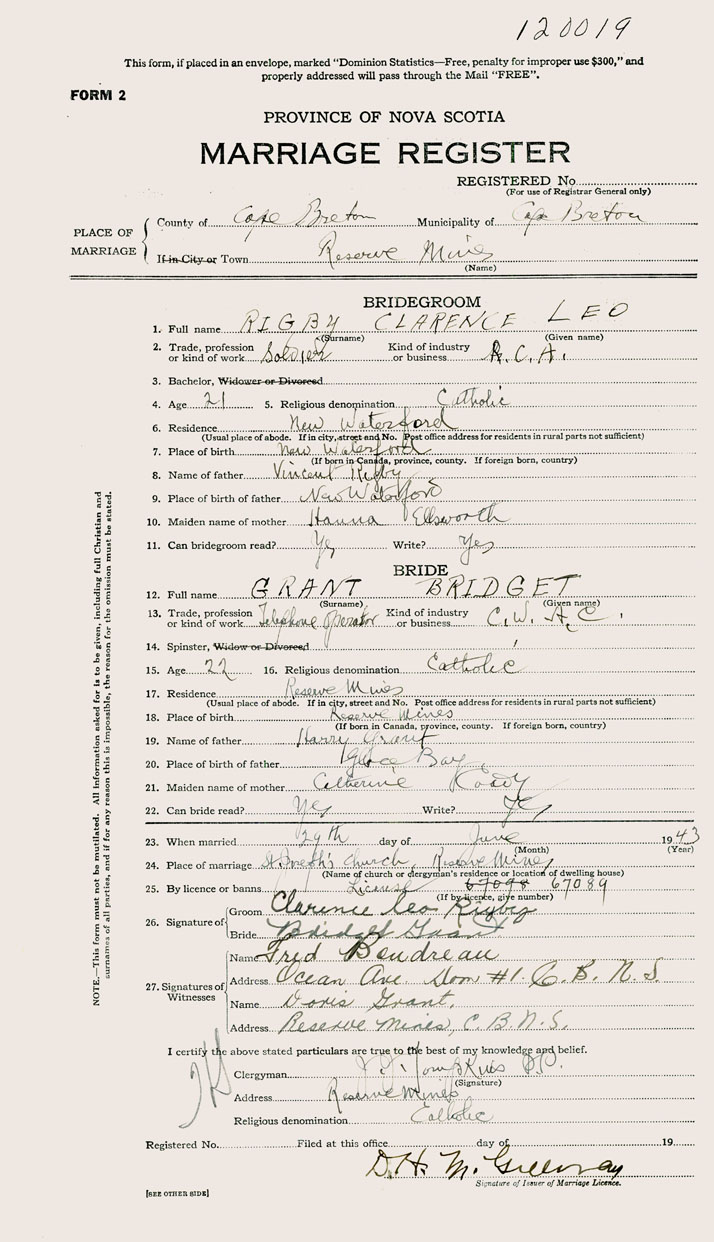 120019
This form, if placed in an envelope, marked "Dominion Statistics—Free, penalty for improper use $300," and
properly addressed will pass through the Mail "FREE".
FORM 2
PROVINCE OF NOVA SCOTIA
MARRIAGE REGISTER
REGISTERED No.
(For use of Registrar General only)
PLACE OF MARRIAGE
County of Cape Breton Municipality of Cape Breton
If in City or Town Reserve Mines
(Name)
BRIDEGROOM
1. Full name RIGBY CLARENCE LEO
(Surname) (Given name)
2. Trade, profession or kind of work Soldier Kind of industry or business R.C.A.
3. Bachelor, Widower or Divorced
4. Age 21 5. Religious denomination Catholic
6. Residence New Waterford
(Usual place of abode. If in city, street and No. Post office address for residents in rural parts not sufficient)
7. Place of birth New Waterford
(If born in Canada, province, county. If foreign born, country)
8. Name of father Vincent Rigby
9. Place of birth of father New Waterford
10. Maiden name of mother Hanna Ellsworth
11. Can bridegroom read? Yes Write? Yes
BRIDE
12. Full name GRANT BRIDGET
(Surname) (Given name)
13. Trade, profession or kind of work Telephone Operator Kind of industry or business C.W.A.C.
14. Spinster, Widow or Divorced
15. Age 22 16. Religious denomination Catholic
17. Residence Reserve Mines
(Usual place of abode. If in city, street and No. Post office address for residents in rural parts not sufficient)
18. Place of birth Reserve Mines
(If born in Canada, province, county. If foreign born, country)
19. Name of father Harry Grant
20. Place of birth of father Glace Bay
21. Maiden name of mother Catherine
22. Can bride read? Yes Write? Yes
23. When married 29th day of June 1943
(Month) (Year)
24. Place of marriage St. Joseph's Church, Reserve Mines
(Name of church or clergyman's residence or location of dwelling house)
25. By licence or banns License 67098 67089
(If by licence, give number)
26. Signature of
Groom Clarence Leo Rigby
Bride Bridget Grant
27. Signatures of Witnesses
Name Fred Boudreau
Address Ocean Ave. Dom #1. C.B. N.S.
Name Doris Grant,
Address Reserve Mines, C.B.N.S.
I certify the above stated particulars are true to the best of my knowledge and belief.
Clergyman J.J. Tompkins P.P.
(Signature)
Address Reserve Mines
Religious denomination Catholic
Registered No. Filed at this office day of 19
Signature of Issuer of Marriage Licence.
[SEE OTHER SIDE]
NOTE.—This form must not be mutilated. All information asked for is to be given, including full Christian and
surnames of all parties, and if for any reason this is impossible, the reason for the omission must be stated.